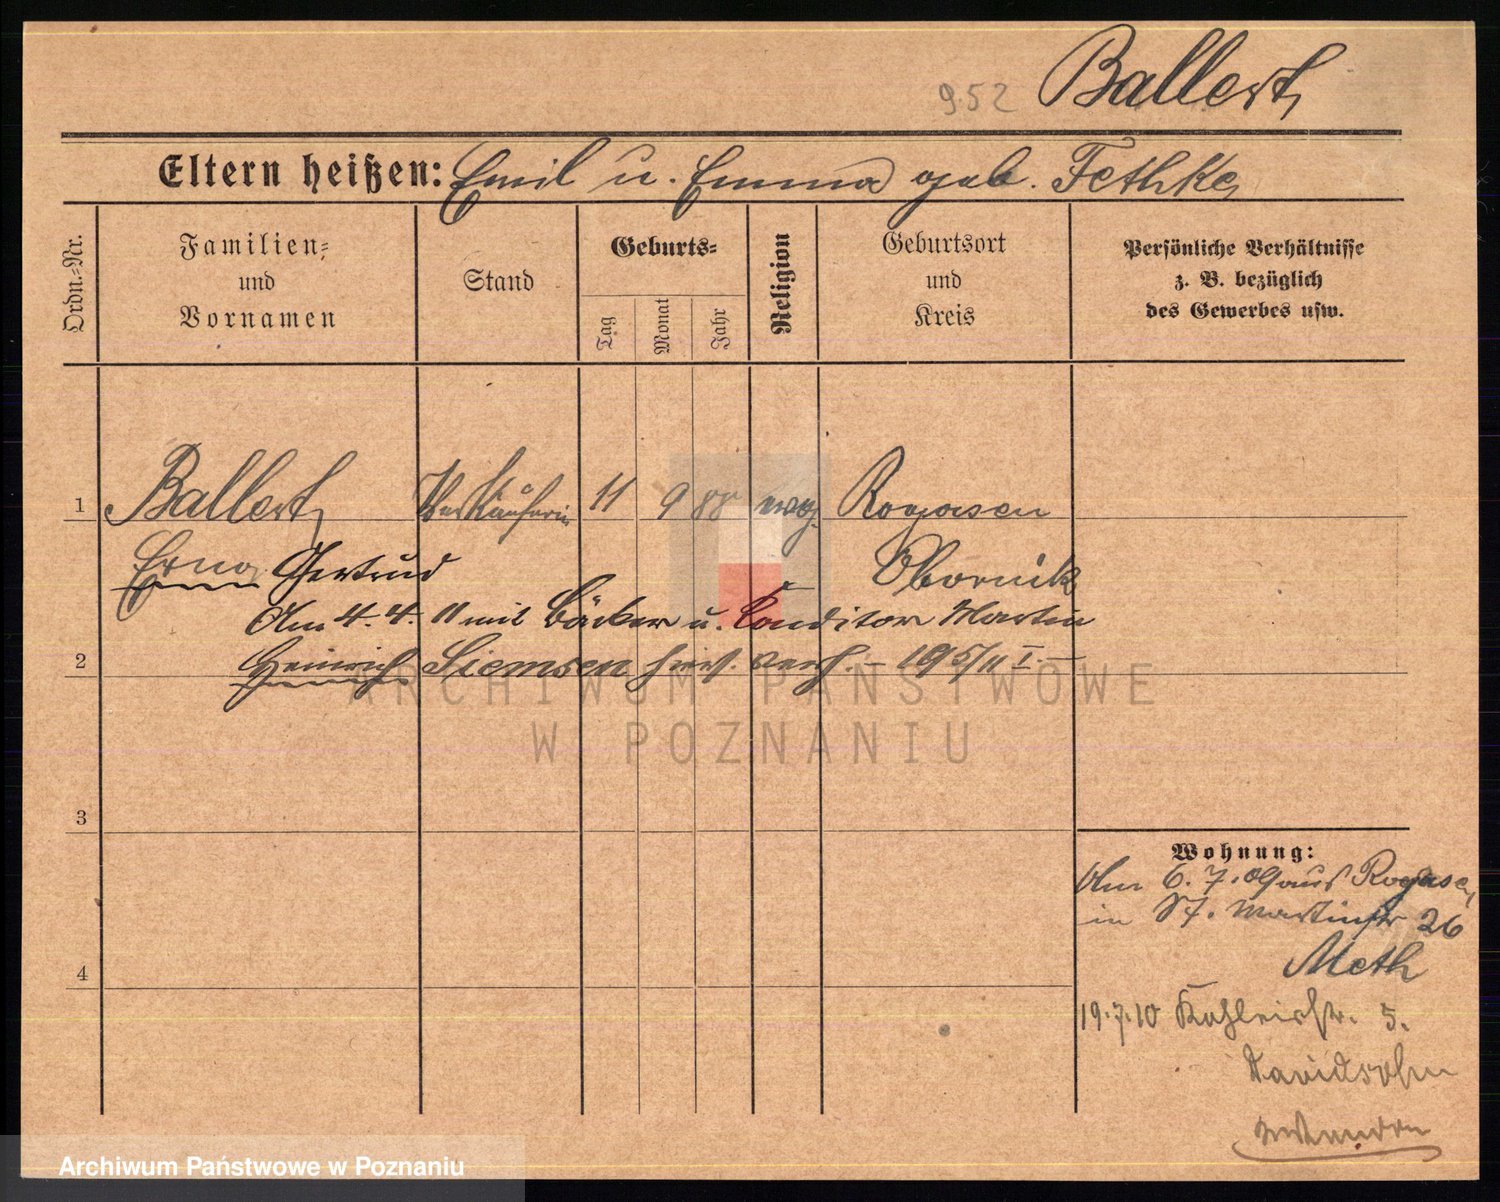 9.52 Ballert
Eltern heißen: Emil u. Emma geb. Fethke
Ordn.=Nr.
Familien=
und
Vornamen
Stand
Geburts=
Tag
Monat
Jahr
Religion
Geburtsort
und
Kreis
Persönliche Verhältnisse
z. B. bezüglich
des Gewerbes usw.
1 Ballert Verkäuferin 11 9 88 evg. Rogasen
Erna Gertrud Obornik
Am 4. 4. 11 mit Bäcker u. Conditor Martin
2 Heinrich Siemsen hier verh. – 195/11 I. –
3
4
Wohnung:
Am 6. 7. 09 aus Rogasen
in St. Martinstr 26
Meth
19.7.10 Str. 5.
Davidsohn
ARCHIWUM PAŃSTWOWE
W POZNANIU
Archiwum Państwowe w Poznaniu